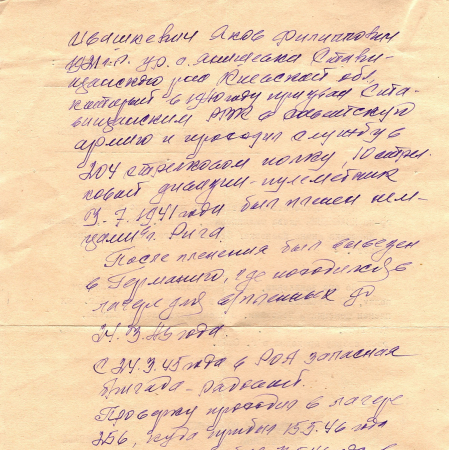 Ивашкевич Яков Филиппович
1921 г.р. ур. с. Янишевка Стави-
щанского р-на Киевской обл.
который в 1940 году призван Ста-
вищанским РВК в советскую
армию и проходил службу в
204 стрелковом полку, 10 стрел-
ковой дивизии - пулеметчик
7. 1941 года был пленен нем-
цами г. Рига.
После пленения был вывезен
в Германию, где находился в
лагере для в/пленных до
24.3.45 года
С 24.3.45 года в РОА запасная
бригада - рядовой.
Проверку проходил в лагере
256, куда прибыл 15.5.46 года